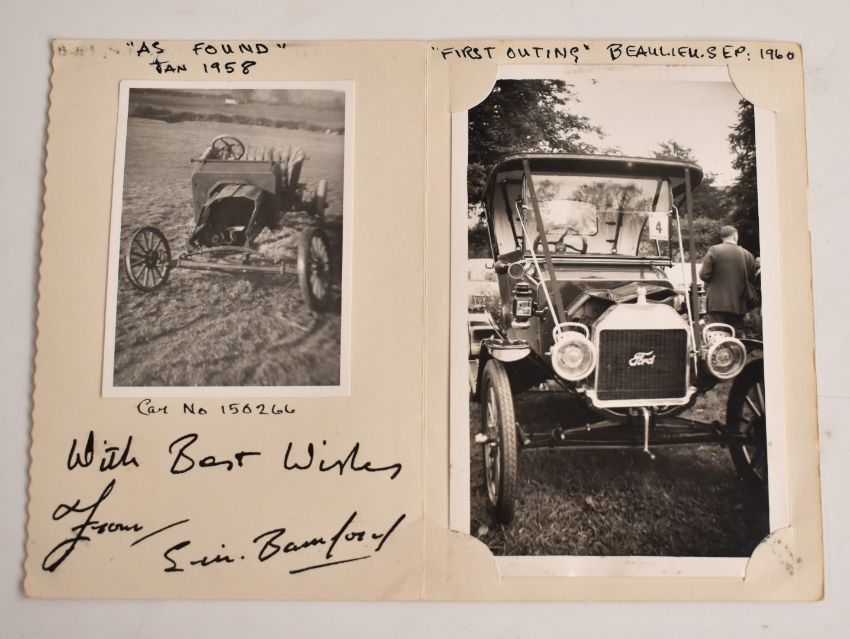 "AS FOUND"
JAN 1958
Car No 150266
With Best Wishes
From
Bamford
"FIRST OUTING" BEAULIEU. SEP: 1960
4
Ford